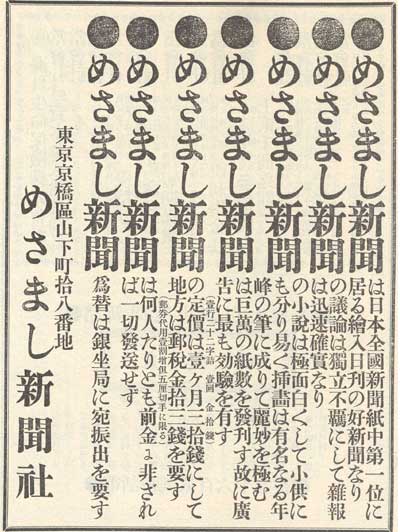 ●めさまし新聞は日本全國新聞紙中第一位に
居る繪入日刊の好新聞なり
●めさまし新聞の議論は獨立不羈にして雜報
は迅速確實なり
●めさまし新聞の小說は極面白くして小供に
も分り易く挿畫は有名なる年
峰の筆に成りて麗妙を極む
●めさまし新聞は巨萬の紙數を發刊す故に廣
告に最も効驗を有す
(壹行二十二字詰 壹回 金拾錢)
●めさまし新聞の定價は壹ヶ月二拾錢にして
地方は郵稅金拾三錢を要す
(郵券代用壹割增但五厘切手に限る)
●めさまし新聞は何人たりとも前金に非され
ば一切發送せず
●めさまし新聞爲替は銀坐局に宛振出を要す
東京京橋區山下町拾八番地
めさまし新聞社